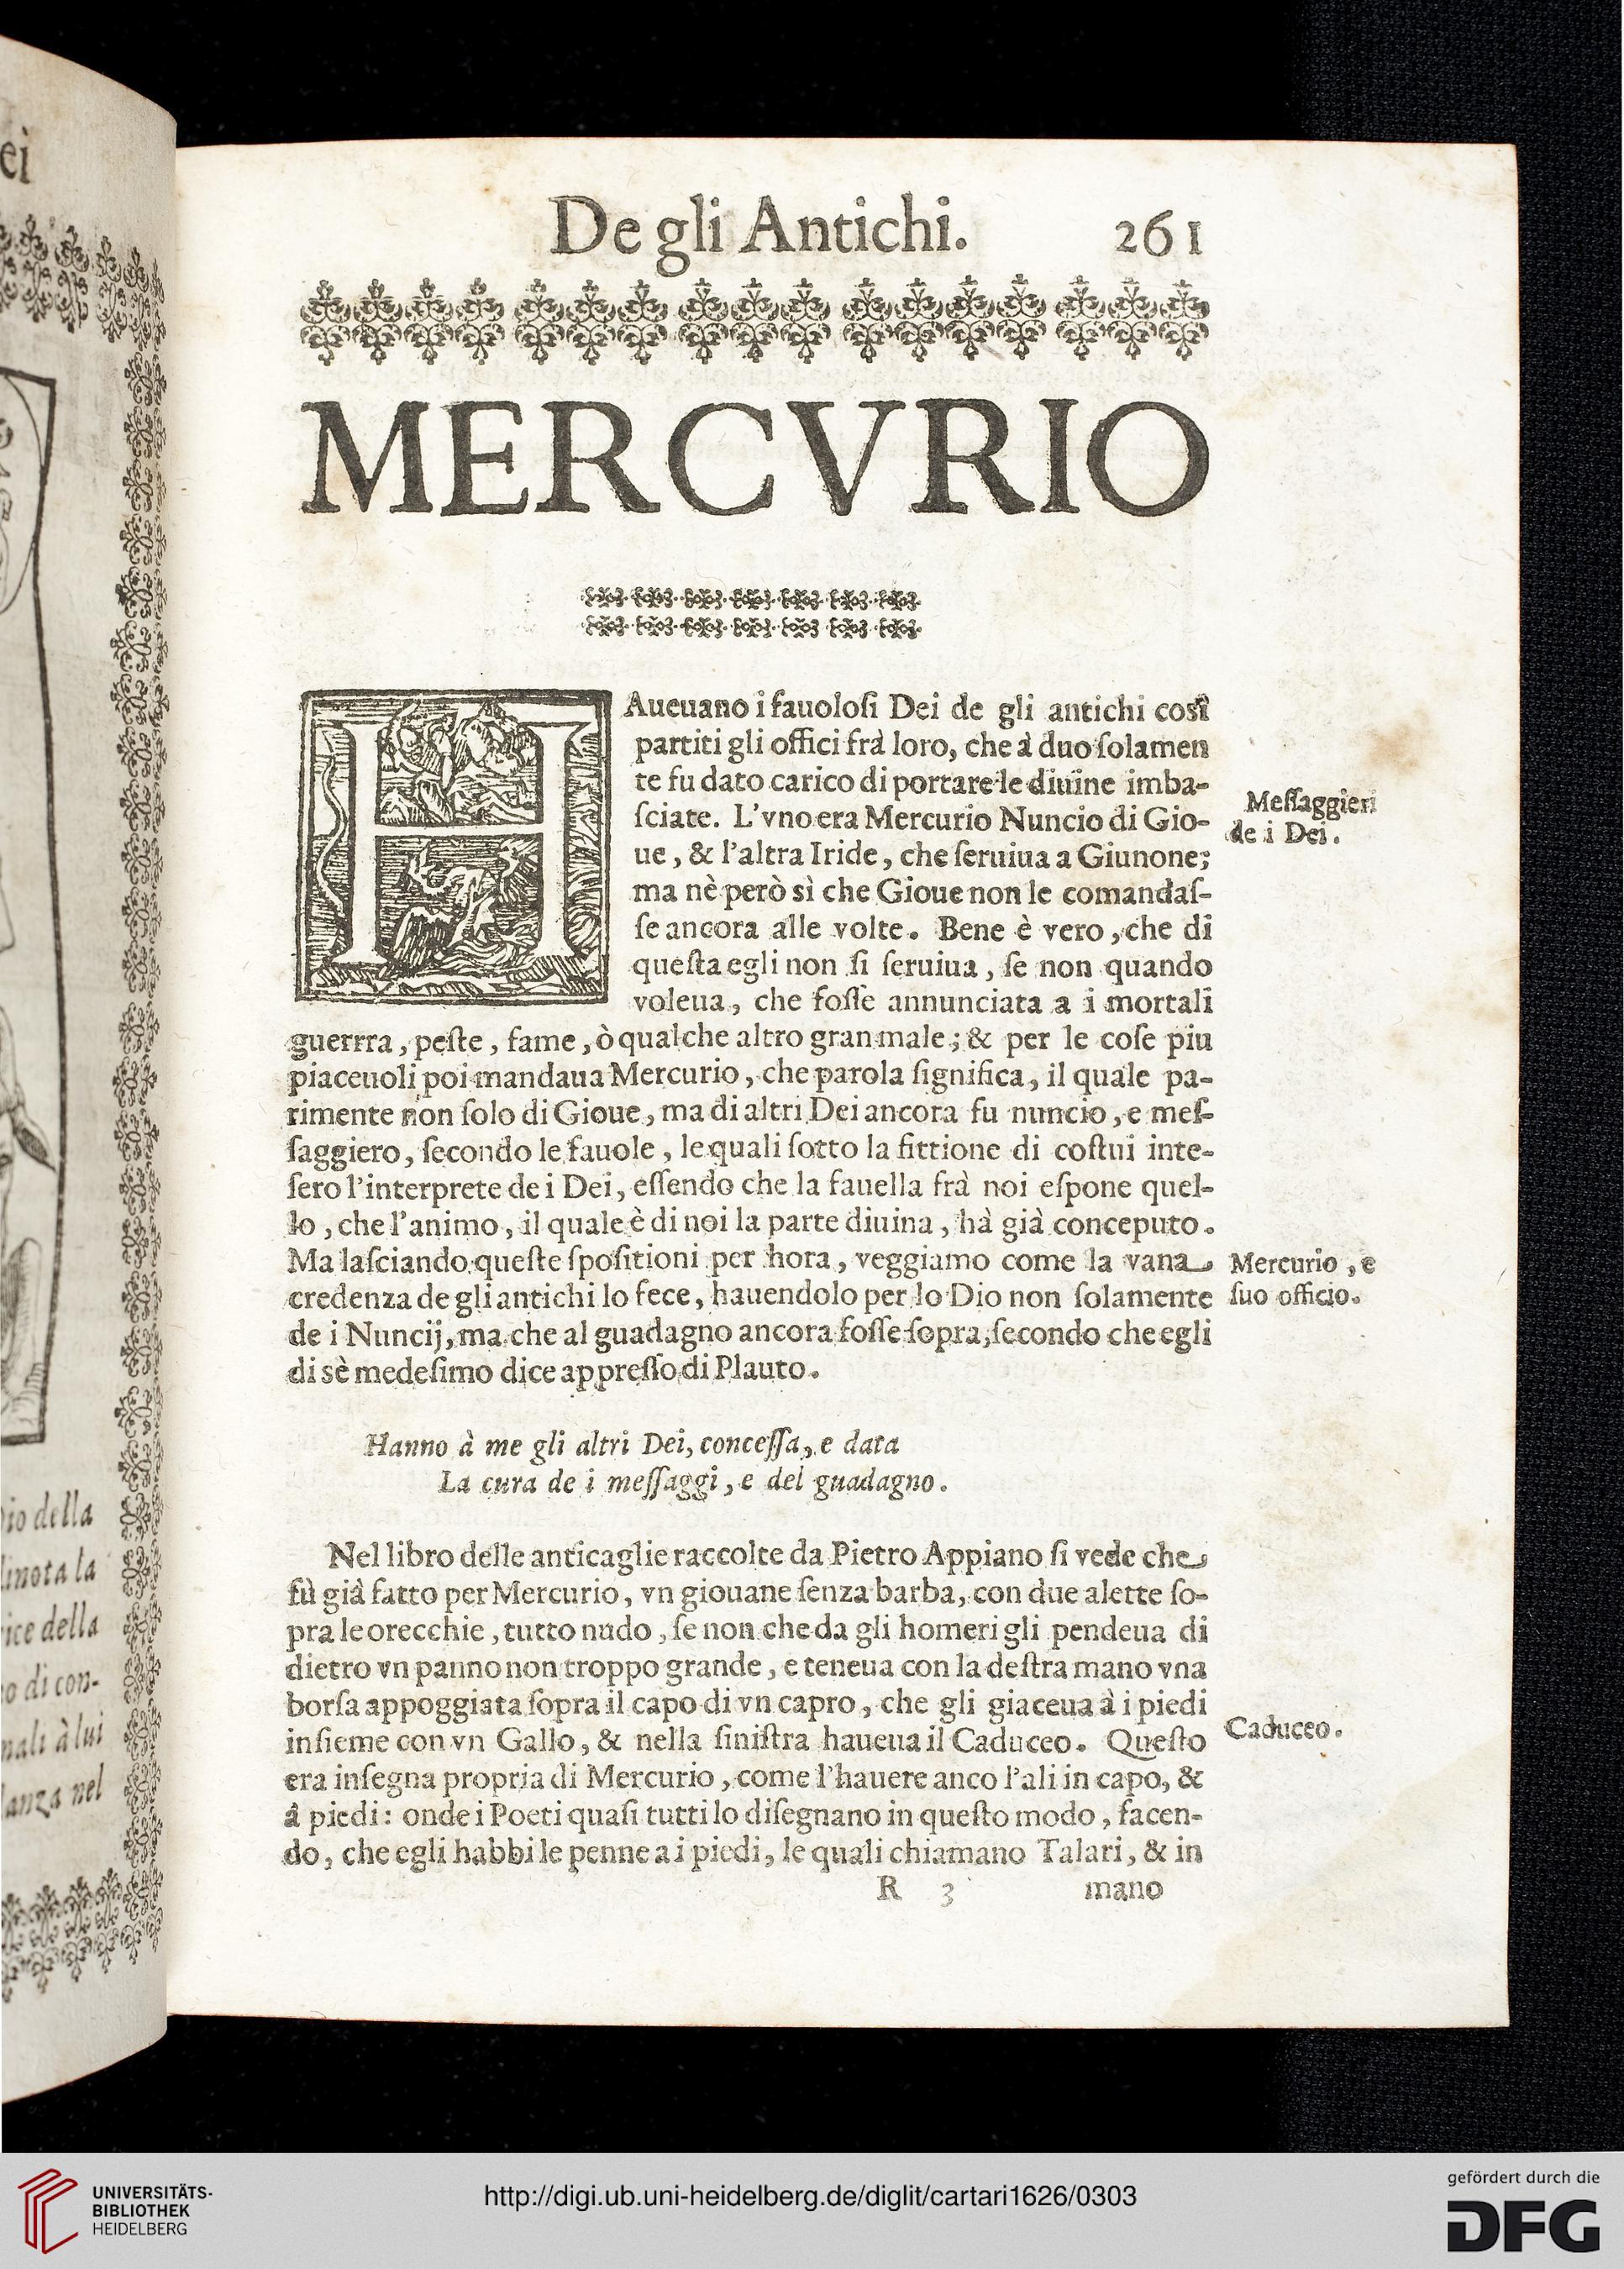 ei
io della
linota la
ice della
o di con-
nali à lui
lanza nel
De gli Antichi. 261
MERCVRIO
HAueuano i fauoloſi Dei de gli antichi così
partiti gli offici frà loro, che à duo ſolamen
te fu dato carico di portare le diuine imba-
ſciate. L'vno era Mercurio Nuncio di Gio-
ue, & l'altra Iride, che ſeruiua a Giunone;
ma nè però sì che Gioue non le comandaſ-
ſe ancora alle volte. Bene è vero, che di
queſta egli non ſi ſeruiua, ſe non quando
voleua, che foſſe annunciata a i mortali
guerrra, peſte, fame, ò qualche altro gran male; & per le coſe piu
piaceuoli poi mandaua Mercurio, che parola ſignifica, il quale pa-
rimente non ſolo di Gioue, ma di altri Dei ancora fu nuncio, e meſ-
ſaggiero, ſecondo le fauole, le quali ſotto la fittione di coſtui inte-
ſero l'interprete de i Dei, eſſendo che la fauella frà noi eſpone quel-
lo, che l'animo, il quale è di noi la parte diuina, hà già conceputo.
Ma laſciando queſte ſpoſitioni per hora, veggiamo come la vana
credenza de gli antichi lo fece, hauendolo per lo Dio non ſolamente
de i Nuncij, ma che al guadagno ancora foſſe ſopra, ſecondo che egli
di sè medeſimo dice appreſſo di Plauto.
Meſſaggieri
de i Dei.
Mercurio, e
ſuo officio.
Hanno à me gli altri Dei, conceſſa, e data
La cura de i meſſaggi, e del guadagno.
Nel libro delle anticaglie raccolte da Pietro Appiano ſi vede che
fù già fatto per Mercurio, vn giouane ſenza barba, con due alette ſo-
pra le orecchie, tutto nudo, ſe non che da gli homeri gli pendeua di
dietro vn panno non troppo grande, e teneua con la deſtra mano vna
borſa appoggiata ſopra il capo di vn capro, che gli giaceua à i piedi
inſieme con vn Gallo, & nella ſiniſtra haueua il Caduceo. Queſto
era inſegna propria di Mercurio, come l'hauere anco l'ali in capo, &
à piedi: onde i Poeti quaſi tutti lo diſegnano in queſto modo, facen-
do, che egli habbi le penne a i piedi, le quali chiamano Talari, & in
Caduceo.
R 3 mano
UNIVERSITÄTS-
BIBLIOTHEK
HEIDELBERG
http://digi.ub.uni-heidelberg.de/diglit/cartari1626/0303
gefördert durch die
DFG